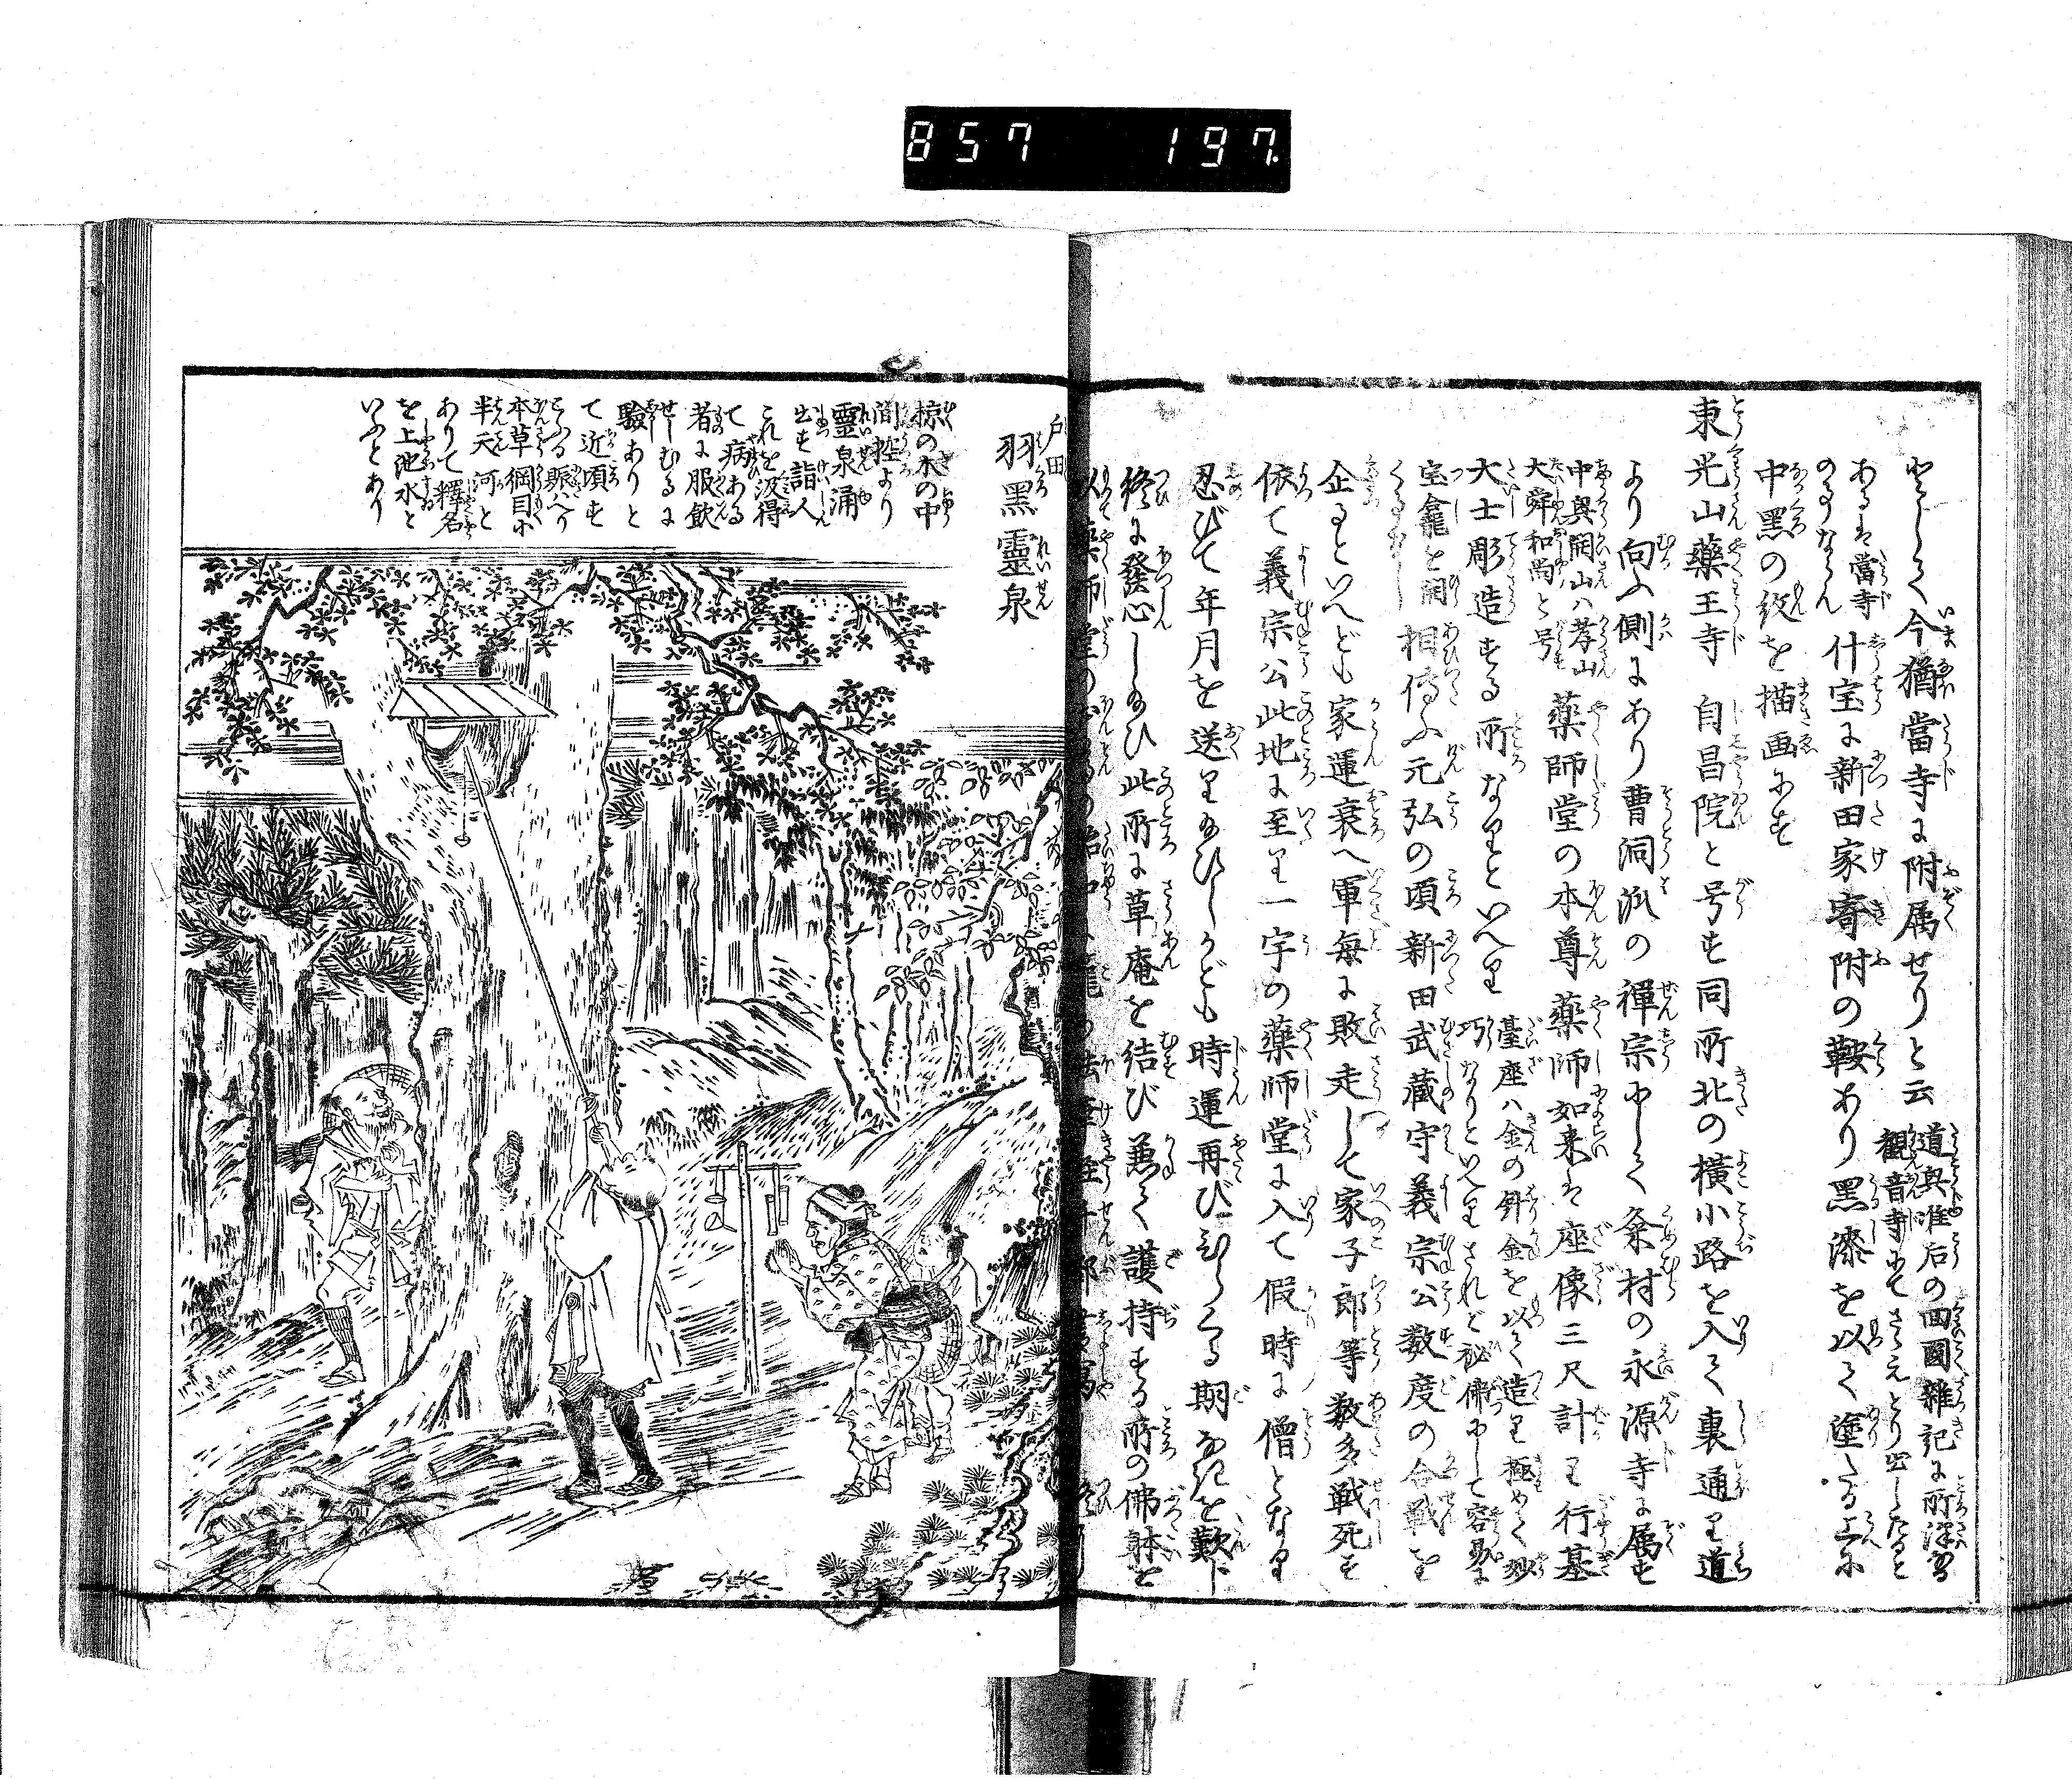 857 197.
として今猶當寺に附属せりと云
道興准后の回國雜記に所澤
観音寺にてさゝえとり出したると
あるは當寺
のことならん
什宝に新田家寄附の鞍あり黒漆を以て塗たる上に
中黒の紋を描画にす
東光山藥王寺 自昌院と号す同所北の横小路を入て裏通り道
より向ふ側にあり曹洞派の禅宗にして久米村の永源寺に属す
中興開山ハ孝山
大舜和尚と号
藥師堂の本尊藥師如来は座像三尺計り行基
大士彫造する所なりといへり
臺座ハ金の針金を以て造り極めて妙
巧なりといへりされど秘佛にして容易に
宝龕を開
くことなし
相傳ふ元弘の頃新田武藏守義宗公数度の合戦を
企るといへども家運衰へ軍毎に敗走して家子郎等数多戦死す
依て義宗公此地に至り一宇の藥師堂に入て假時に僧となり
忍びて年月を送り給ひしかども時運再びひらくる期なきを歎じ
終に發心し給ひ此所に草庵を結び兼て護持する所の佛躰を
以て藥師堂の
戸田
羽黒靈泉
椋の木の中
間虚より
靈泉涌
出す詣人
これを汲得
て病ある
者に服飲
せしむるに
驗ありと
て近頃す
こぶる賑へり
本草綱目に
半天河と
ありて釋名
を上池水と
いふとあり